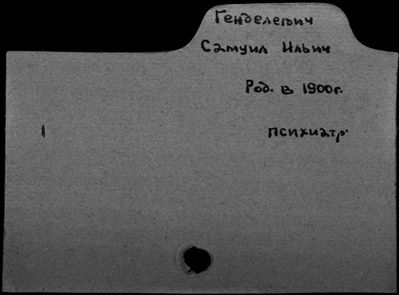 Генделевич
Самуил Ильич
Род. в 1900г.
1 психиатр.